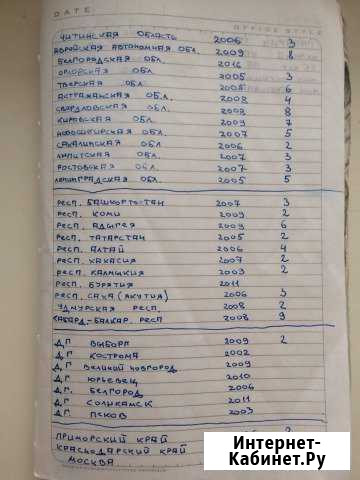 DATE
OFFICE STYLE
ЧИТИНСКАЯ ОБЛАСТЬ 2006 3
ЕВРЕЙСКАЯ АВТОНОМНАЯ ОБЛ. 2009 8
БЕЛГОРОДСКАЯ ОБЛ. 2016
ОРЛОВСКАЯ ОБЛ. 2005 3
ТВЕРСКАЯ ОБЛ. 2005 6
АСТРАХАНСКАЯ ОБЛ. 2008 4
СВЕРДЛОВСКАЯ ОБЛ. 2008 8
КИРОВСКАЯ ОБЛ. 2009 7
НОВОСИБИРСКАЯ ОБЛ. 2007 5
САХАЛИНСКАЯ ОБЛ. 2006 2
ЛИПЕТСКАЯ ОБЛ. 2007 3
РОСТОВСКАЯ ОБЛ. 2007 3
ЛЕНИНГРАДСКАЯ ОБЛ. 2005 5
РЕСП. БАШКОРТОСТАН 2007 3
РЕСП. КОМИ 2009 2
РЕСП. АДЫГЕЯ 2009 6
РЕСП. ТАТАРСТАН 2005 2
РЕСП. АЛТАЙ 2006 4
РЕСП. ХАКАСИЯ 2007 2
РЕСП. КАЛМЫКИЯ 2009 2
РЕСП. БУРЯТИЯ 2011
РЕСП. САХА (ЯКУТИЯ) 2006 3
УДМУРСКАЯ РЕСП. 2008 2
КАБАРД-БАЛКАР. РЕСП 2008 9
Д.Г ВЫБОРГ 2009 2
Д.Г КОСТРОМА 2002
Д.Г ВЕЛИКИЙ НОВГОРОД 2009
Д.Г. ЮРЬЕВЕЦ 2010
Д.Г. БЕЛГОРОД 2006
Д.Г СОЛИКАМСК 2011
Д.Г. ПСКОВ 2003
ПРИМОРСКИЙ КРАЙ
КРАСНОДАРСКИЙ КРАЙ
МОСКВА
Интернет-
Кабинет.Ру